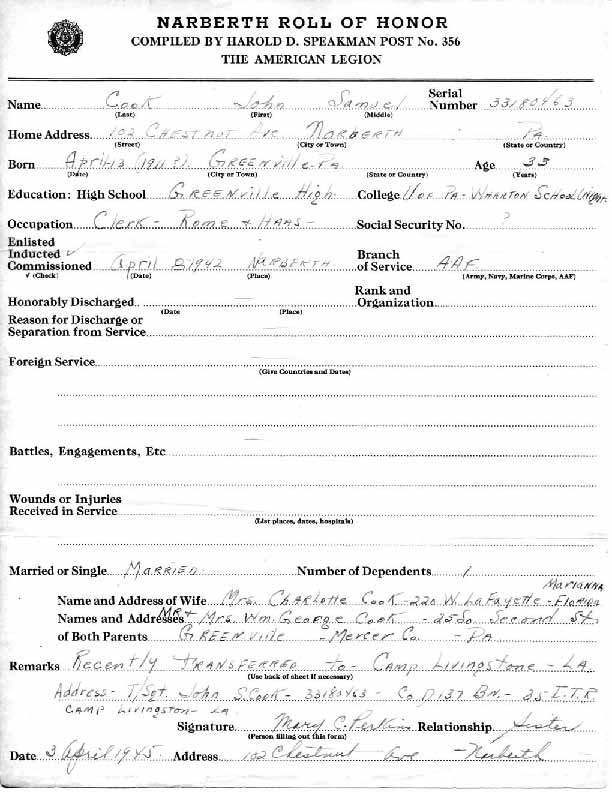 NARBERTH ROLL OF HONOR
COMPILED BY HAROLD D. SPEAKMAN POST No. 356
THE AMERICAN LEGION
Name Cook John Samuel Serial Number 33180463
(Last) (First) (Middle)
Home Address 102 CHESTNUT Ave NARBERTH PA.
(Street) (City or Town) (State or Country)
Born April 13 (1911?) GREENVille-PA Age 33
(Date) (City or Town) (State or Country) (Years)
Education: High School GREENville High College U of PA - WHARTON SCHOOL (Night)
Occupation Clerk - Rome & HAAS - Social Security No. ?
Enlisted
Inducted ✓
Commissioned April 8 1942 NARBERTH Branch of Service AAF
✓ (Check) (Date) (Place) (Army, Navy, Marine Corps, AAF)
Honorably Discharged Rank and Organization
(Date (Place)
Reason for Discharge or
Separation from Service
Foreign Service
(Give Countries and Dates)
Battles, Engagements, Etc
Wounds or Injuries
Received in Service
(List places, dates, hospitals)
Married or Single MARRIED. Number of Dependents 1
MARIANNA
Name and Address of Wife Mrs. CHARlotte Cook - 220 W. LaFayette - FloRida
Names and Addresses MR + Mrs. Wm. George Cook - 25 So. Second St.
of Both Parents GREENville - Mercer Co. - PA
Remarks Recently TRANSFERRED to - CAMP LIVINGSTONE - LA.
(Use back of sheet if necessary)
Address - T/Sgt. John S. Cook - 33180463 - Co D 137 BN. - 35 I.T.R.
CAMP LIVINGSTON - LA.
Signature Mary C. Perkins Relationship Sister
(Person filling out this form)
Date 3 April 1945 Address 102 Chestnut Ave - Narberth